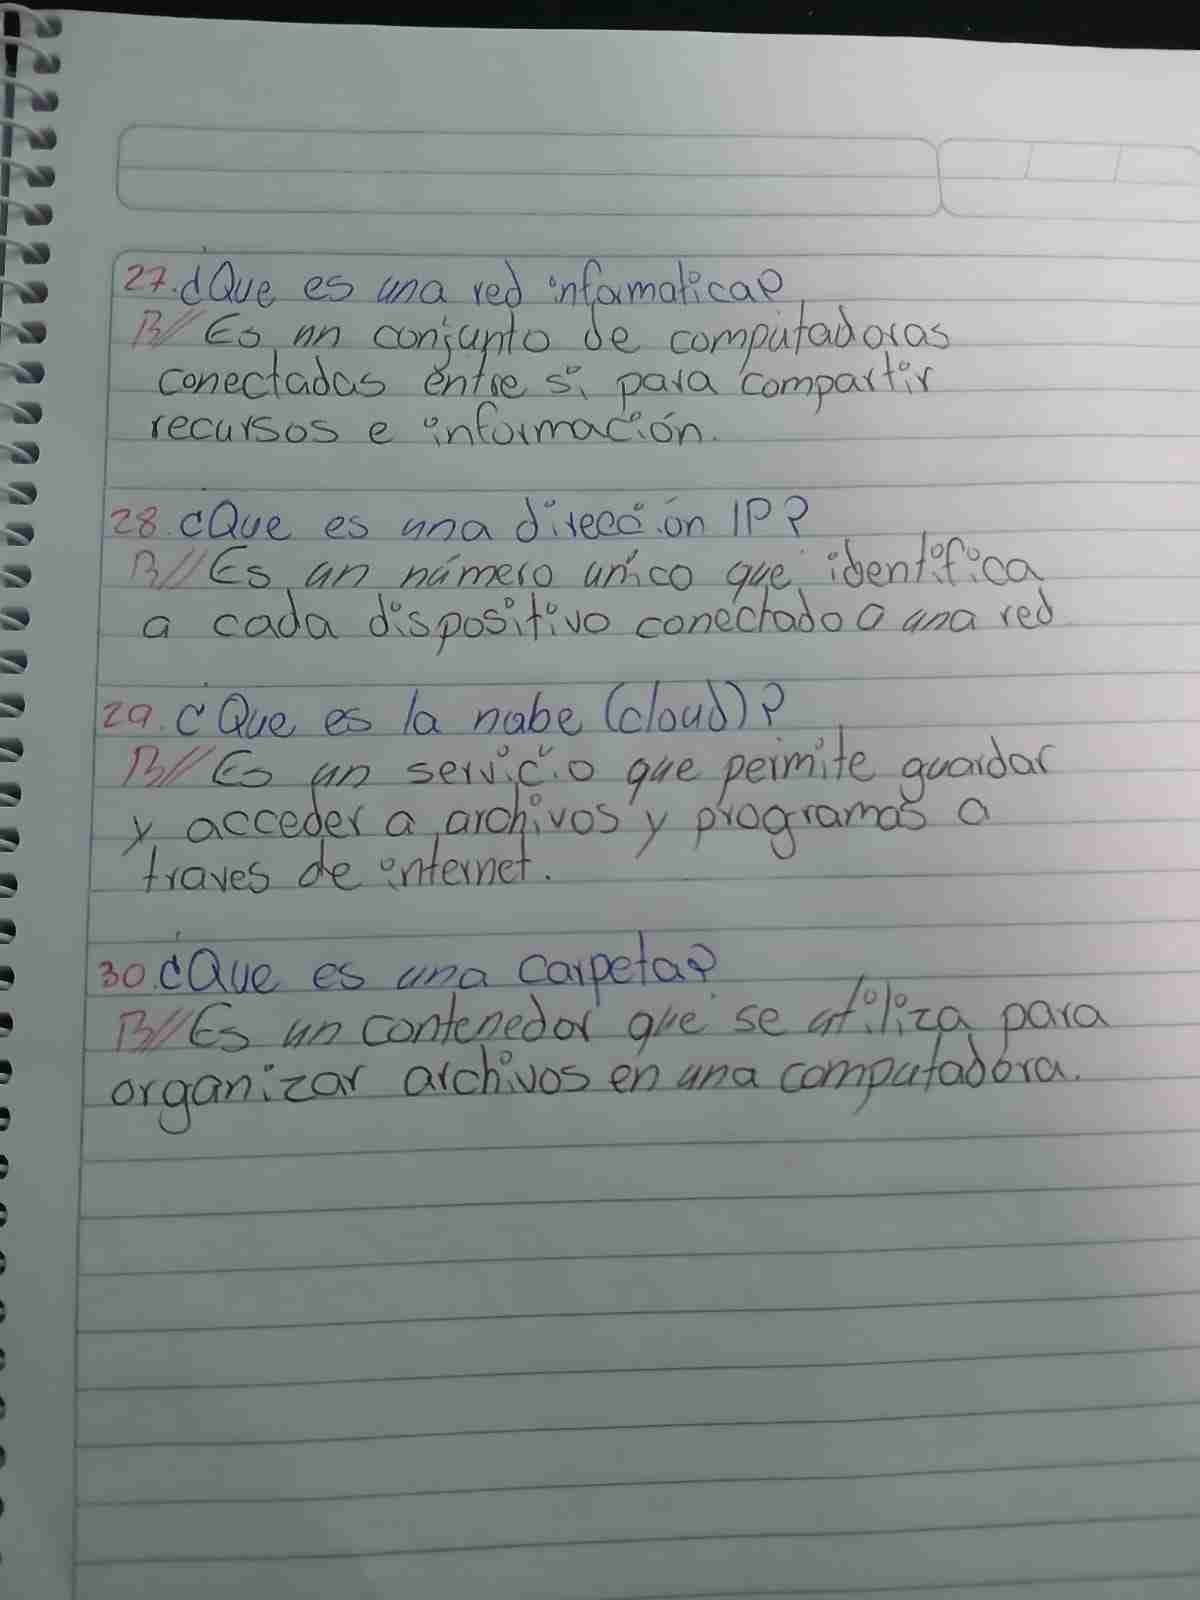 27. ¿Que es una red informatica?
R// Es un conjunto de computadoras
conectadas entre si para compartir
recursos e información.
28. ¿Que es una dirección IP?
R// Es un número unico que identifica
a cada dispositivo conectado a una red
29. ¿Que es la nube (cloud)?
R// Es un servicio que permite guardar
y acceder a archivos y programas a
traves de internet.
30. ¿Que es una carpeta?
R// Es un contenedor que se utiliza para
organizar archivos en una computadora.